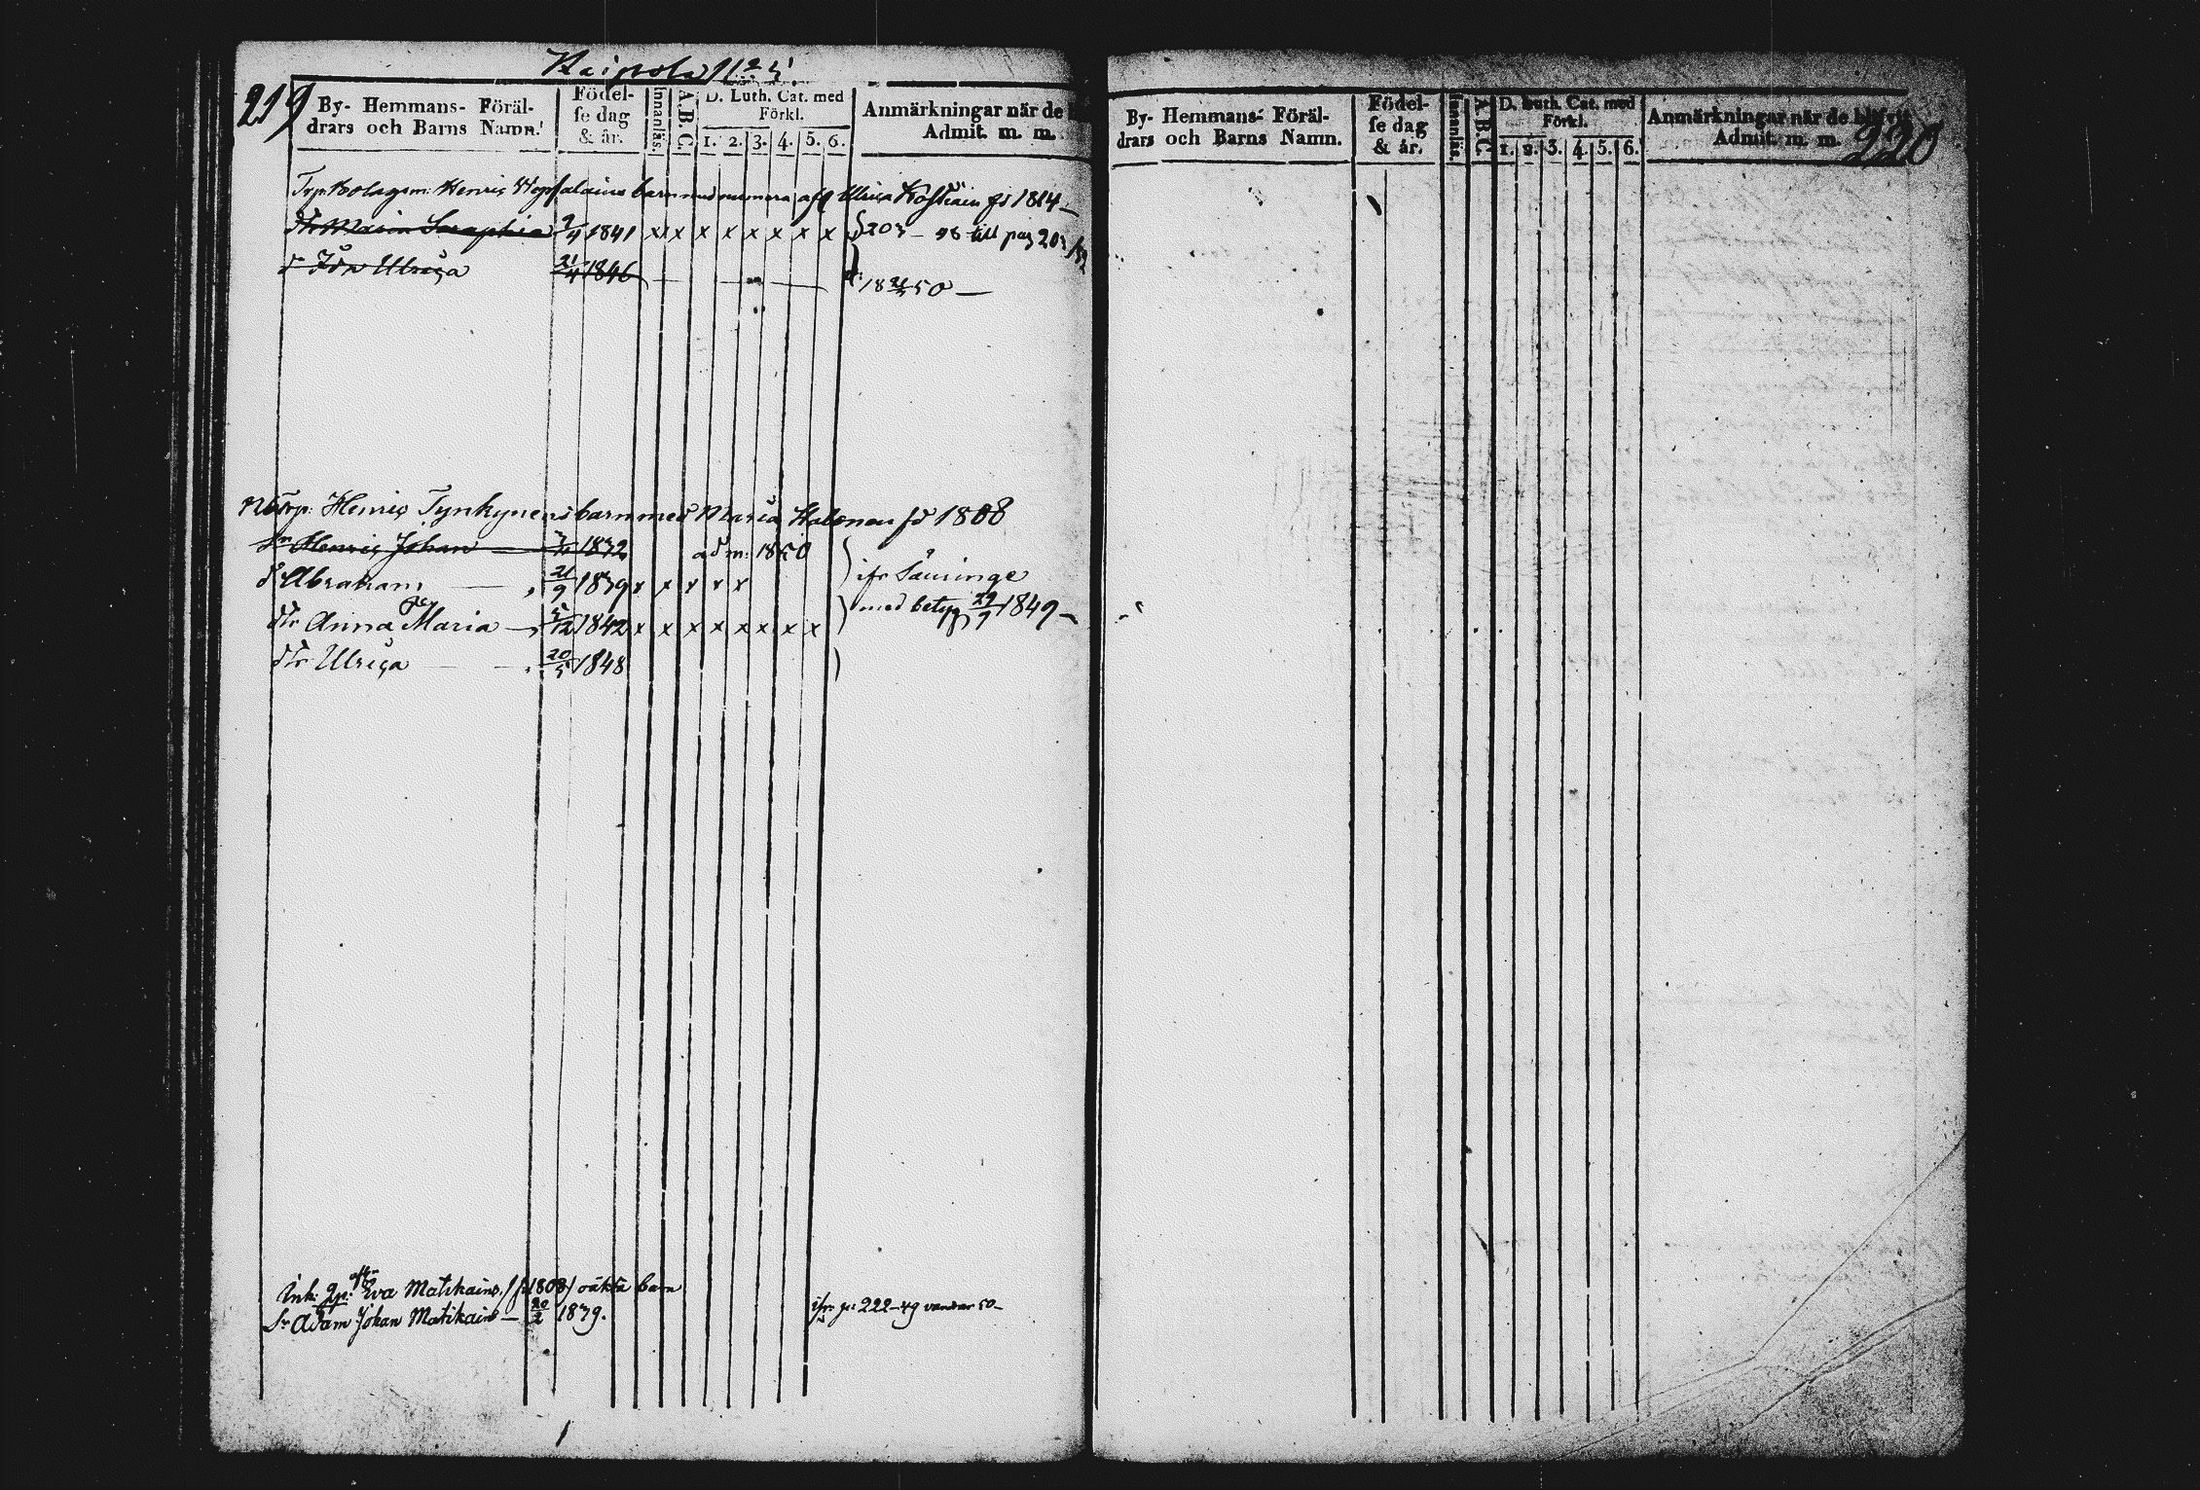 219
By- Hemmans- Föräl-
drars och Barns Namn.
Födel-
se dag
& år.
Innanläs.
A.B.C.
D. Luth. Cat. med
Förkl.
1. 2. 3. 4. 5. 6.
Anmärkningar när de
Admit. m. m.
Henric barn med Ulrica fd 1814
dr Maria Seraphia 1841 x x x x x x x x 203 - 48 till pag 203
dr Ida Ulrica 21/4 1846 50
Henric Tynkynens barn med Maria Halonen fd 1808
Sn Henric Johan 1832 adm: 1850
Abraham 21/9 1839 x x x x x ifr Säminge
dtr Anna Maria 5/12 1842 x x x x x x x x med betyg 29/9 1849
dtr Ulrica 20/5 1848
Ink: Eva Matikains fd 1808 oäkta barn
Sn Adam Johan Matikain 20/2 1839. ifr p: 222-49 50
220
By- Hemmans- Föräl-
drars och Barns Namn.
Födel-
se dag
& år.
Innanläs.
A.B.C.
D. Luth. Cat. med
Förkl.
1. 2. 3. 4. 5. 6.
Anmärkningar när de blifvit
Admit. m. m.